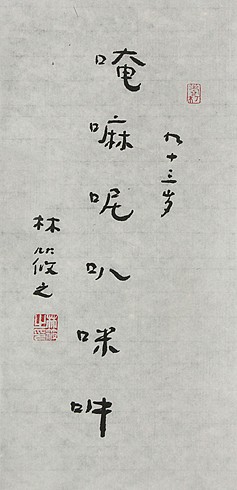 九十三岁
唵嘛呢叭咪吽
林筱之